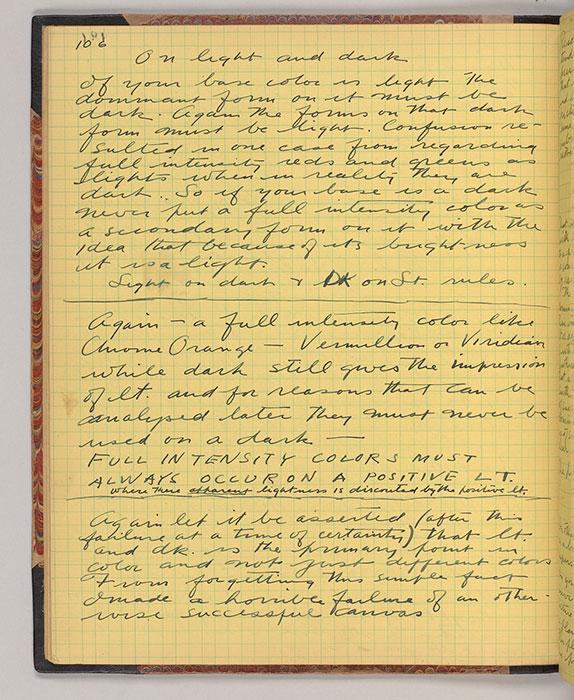 106
On light and dark
If your base color is light the
dominant form on it must be
dark. Again the forms on that dark
form must be light. Confusion re-
sulted in one case from regarding
full intensity reds and greens as
lights when in reality they are
dark. So if your base is a dark
never put a full intensity color as
a secondary form on it with the
idea that because of its brightness
it is a light.
Light on dark & DK on Lt. rules.
Again — a full intensity color like
Chrome Orange — Vermillion or Viridian
while dark still gives the impression
of lt. and for reasons that can be
analysed later they must never be
used on a dark —
FULL INTENSITY COLORS MUST
ALWAYS OCCUR ON A POSITIVE LT.
where there apparent lightness is discounted by the positive lt.
Again let it be asserted (after this
failure at a time of certainty) that lt.
and dk. is the primary point in
color and not just different colors
From forgetting this simple fact
I made a horrible failure of an other-
wise successful canvas